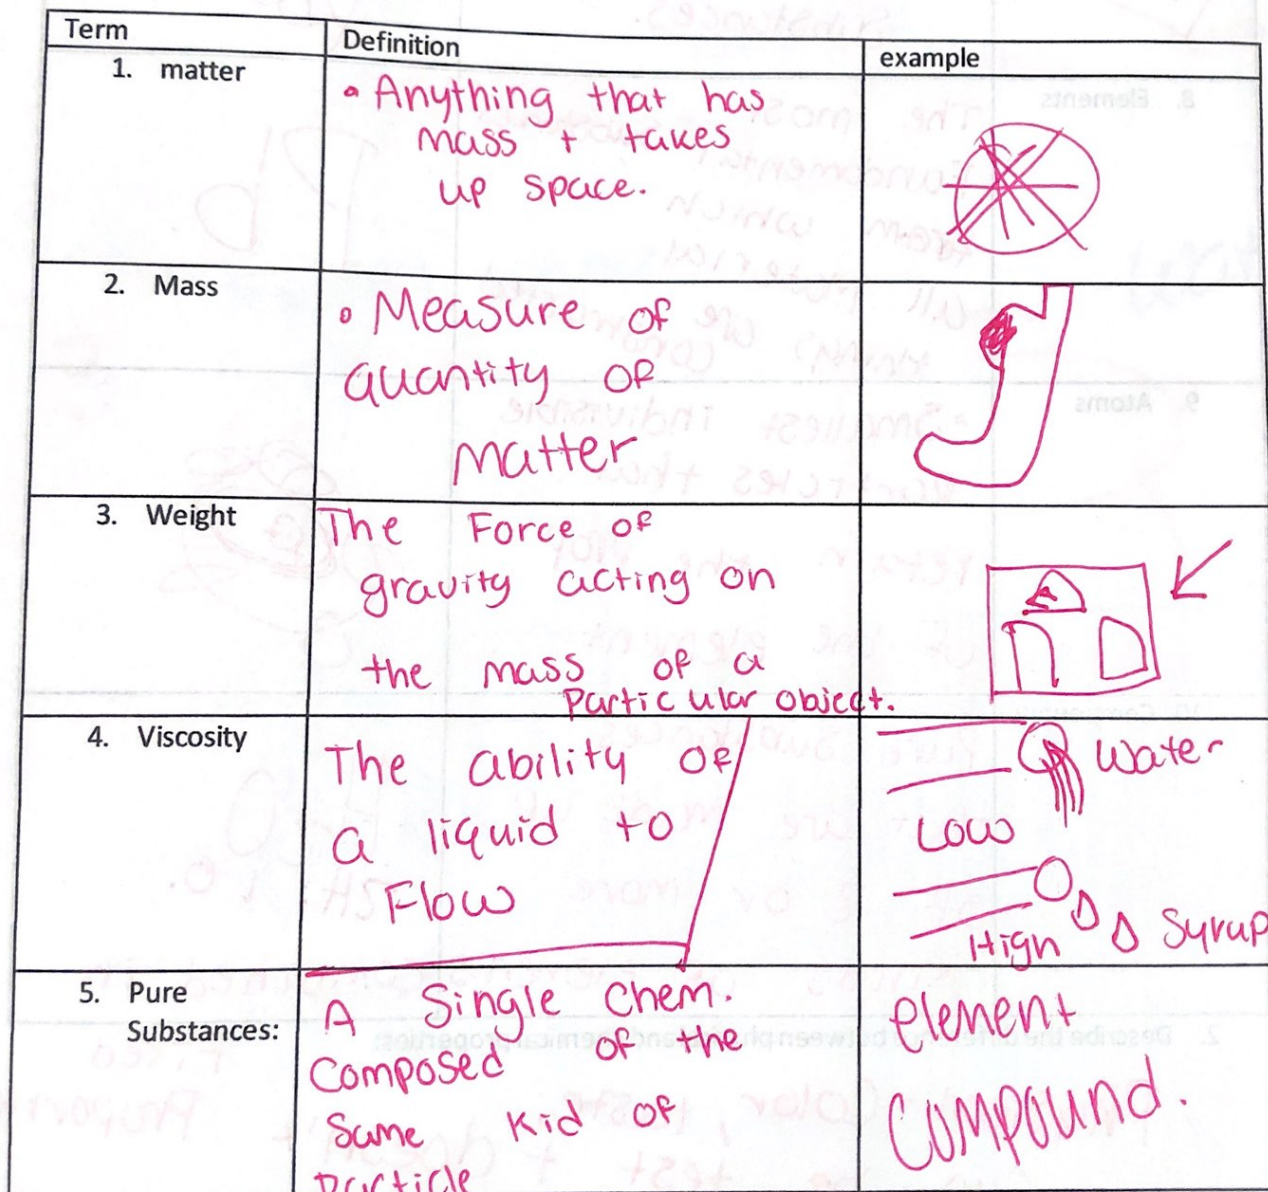 Term Definition example
1. matter
• Anything that has
mass + takes
up space.
2. Mass
• Measure of
quantity of
matter
3. Weight
The Force of
gravity acting on
the mass of a
Particular object.
4. Viscosity
The ability of
a liquid to
Flow
Water
Low
High Syrup
5. Pure
Substances:
A Single Chem.
Composed of the
Same Kid of
Particle
element
Compound.